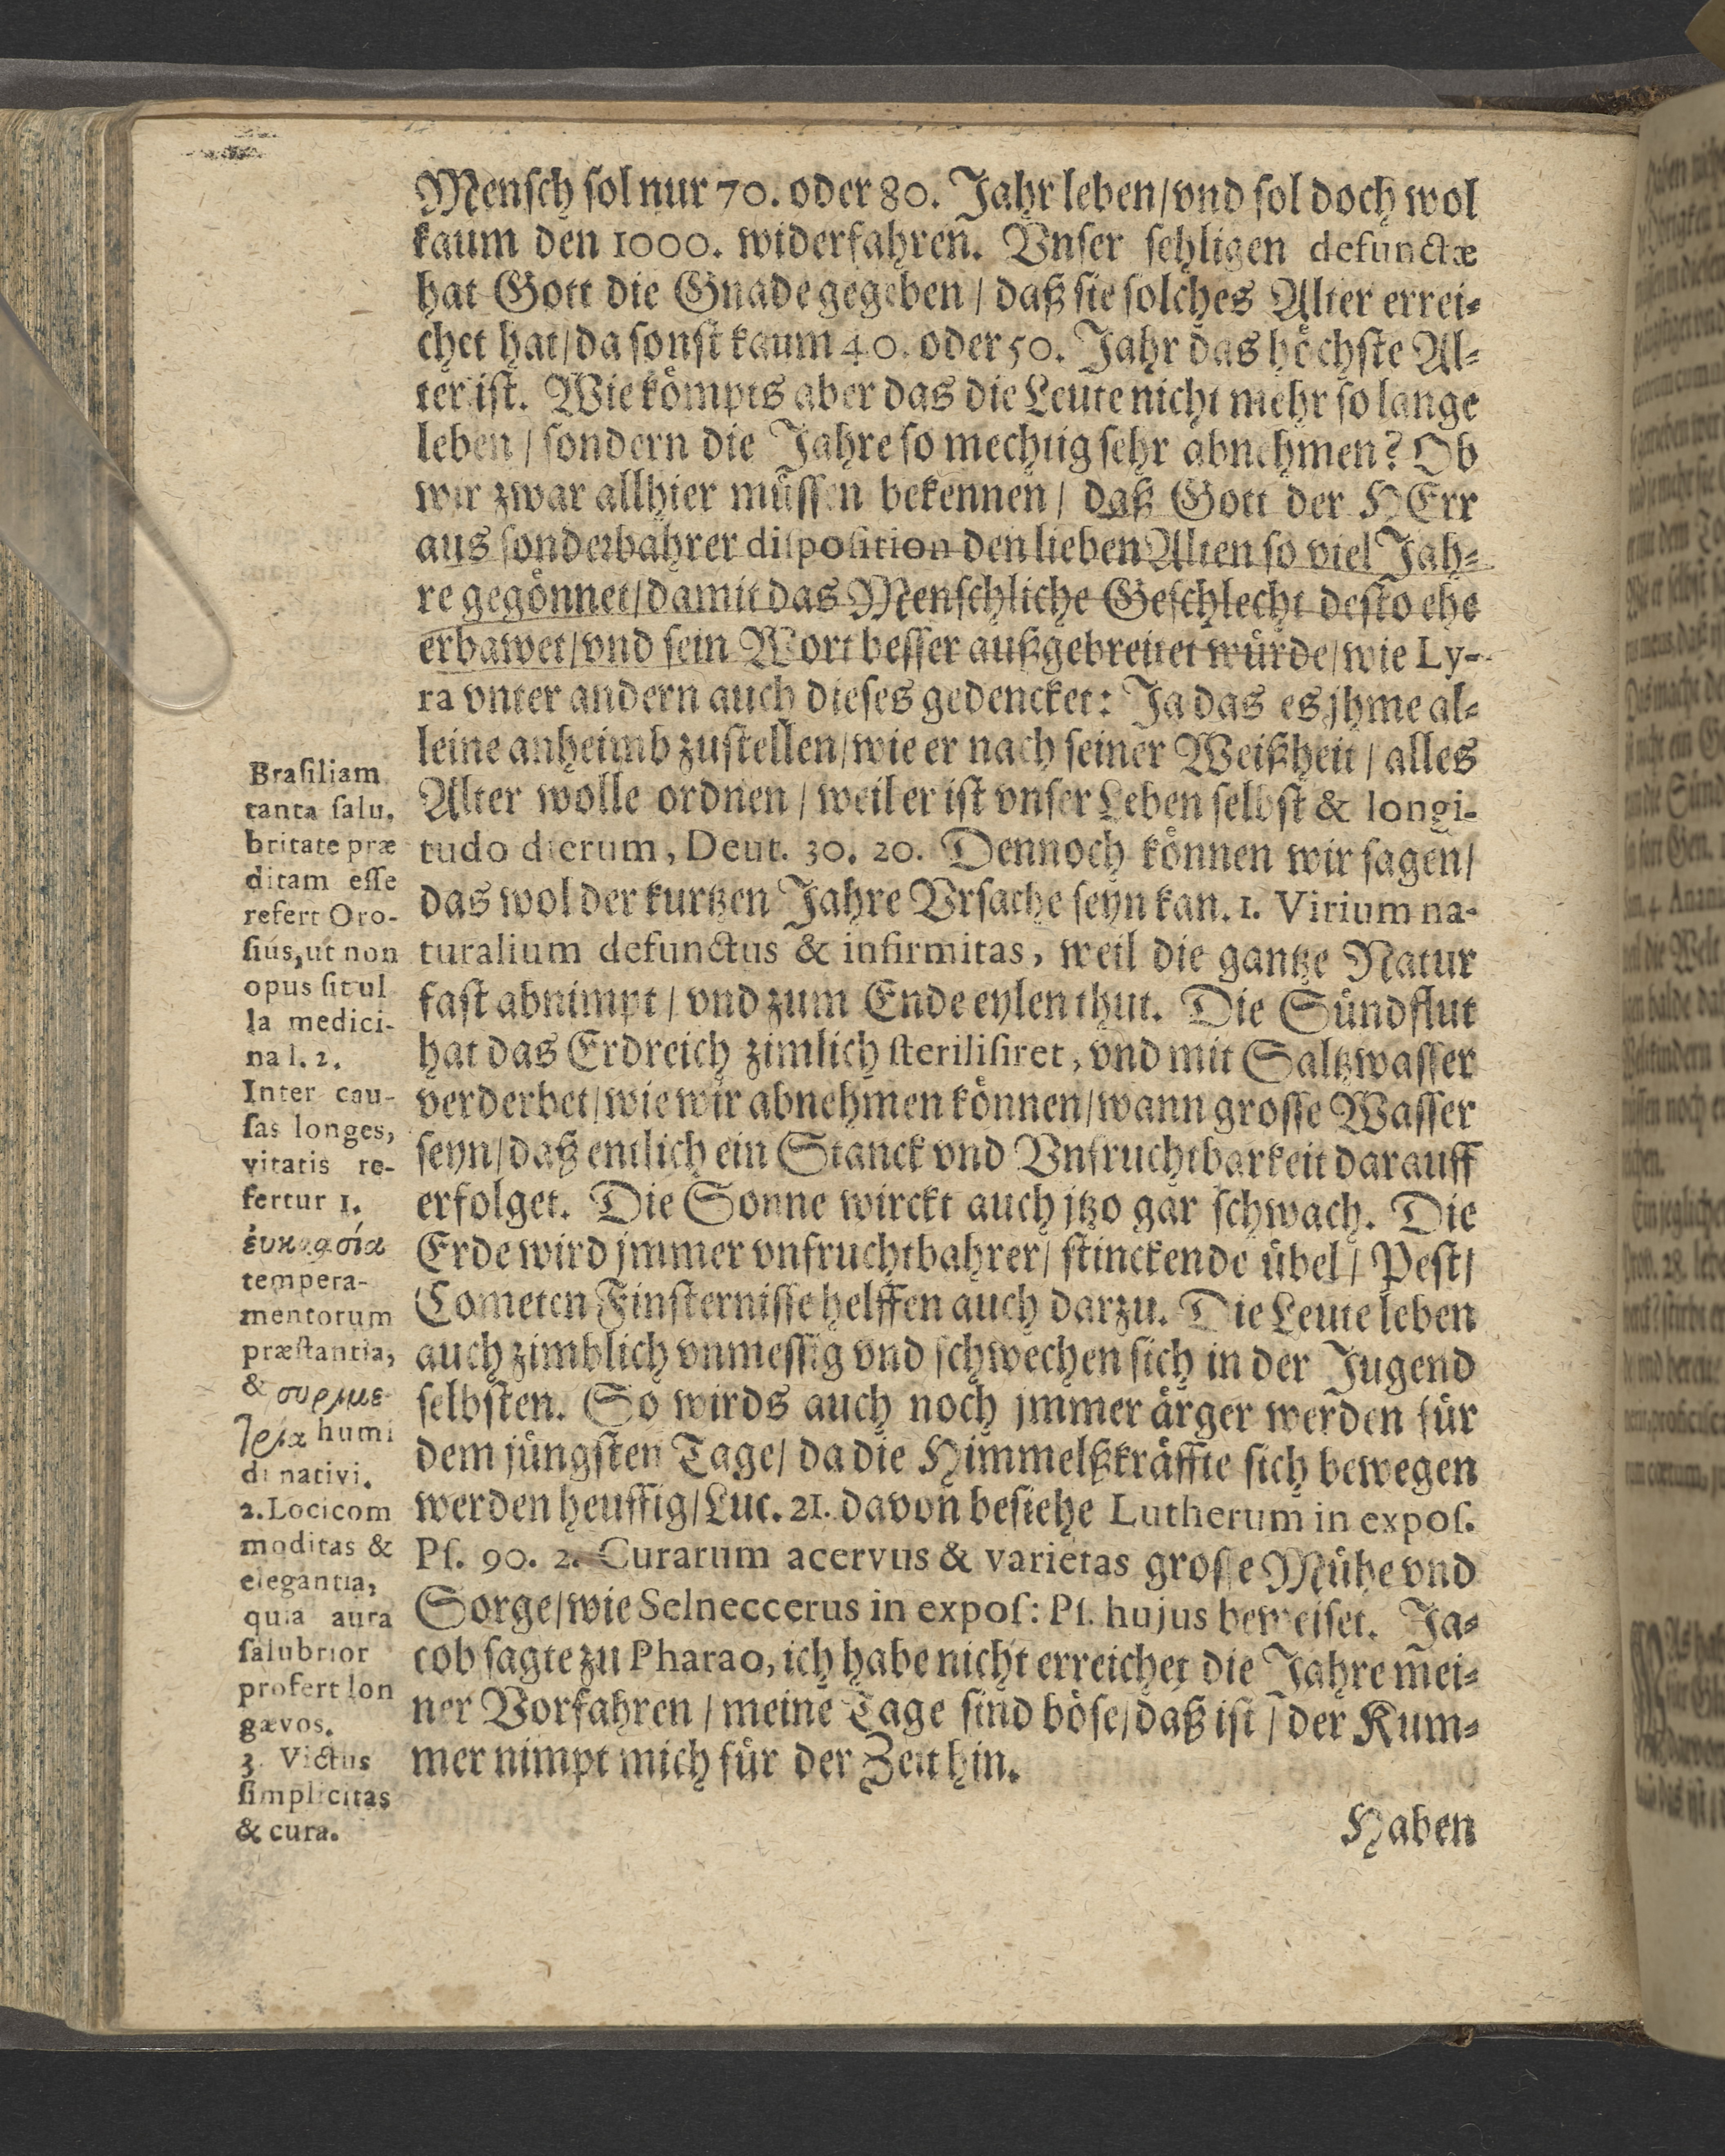 Menſch ſol nur 70. oder 80. Jahr leben/vnd ſol doch wol
kaum den 1000. widerfahren. Vnſer ſehligen defunctæ
hat Gott die Gnade gegeben / daß ſie ſolches Alter errei⸗
chet hat/da ſonſt kaum 40. oder 50. Jahr das hoͤchſte Al⸗
ter iſt. Wie koͤmpts aber das die Leute nicht mehr ſo lange
leben / ſondern die Jahre ſo mechtig ſehr abnehmen? Ob
wir zwar allhier muͤſſen bekennen / daß Gott der HErr
aus ſonderbahrer diſpoſition den lieben Alten ſo viel Jah⸗
re gegoͤnnet/damit das Menſchliche Geſchlecht deſto ehe
erbawet/vnd ſein Wort beſſer außgebreitet wuͤrde/wie Ly-
ra vnter andern auch dieſes gedencket: Ja das es jhme al⸗
leine anheimb zuſtellen/wie er nach ſeiner Weißheit / alles
Alter wolle ordnen / weil er iſt vnſer Leben ſelbſt & longi-
tudo dierum, Deut. 30. 20. Dennoch koͤnnen wir ſagen/
das wol der kurtzen Jahre Vrſache ſeyn kan. 1. Virium na-
turalium defunctus & infirmitas, weil die gantze Natur
faſt abnimpt / vnd zum Ende eylen thut. Die Suͤndflut
hat das Erdreich zimlich ſteriliſiret, vnd mit Saltzwaſſer
verderbet/wie wir abnehmen koͤnnen/wann groſſe Waſſer
ſeyn/daß entlich ein Stanck vnd Vnfruchtbarkeit darauff
erfolget. Die Sonne wirckt auch jtzo gar ſchwach. Die
Erde wird jmmer vnfruchtbahrer/ ſtinckende uͤbel / Peſt/
Cometen Finſterniſſe helffen auch darzu. Die Leute leben
auch zimblich vnmeſſig vnd ſchwechen ſich in der Jugend
ſelbſten. So wirds auch noch jmmer aͤrger werden fuͤr
dem juͤngſten Tage/ da die Himmelßkraͤffte ſich bewegen
werden heuffig/Luc. 21. davon beſiehe Lutherum in expoſ.
Pſ. 90. 2. Curarum acervus & varietas groſſe Muͤhe vnd
Sorge/wie Selneccerus in expoſ: Pſ. hujus beweiſet. Ja⸗
cob ſagte zu Pharao, ich habe nicht erreichet die Jahre mei⸗
ner Vorfahren / meine Tage ſind boͤſe/daß iſt / der Kum⸗
mer nimpt mich fuͤr der Zeit hin.
Haben
Braſiliam
tanta ſalu,
britate præ
ditam eſſe
refert Oro-
ſius, ut non
opus ſit ul
la medici-
na l. 2.
Inter cau-
ſas longes,
vitatis re-
fertur 1.
ἐυκρασία
tempera-
mentorum
præſtantia,
& συμμε-
τρία humi
di nativi.
2. Loci com
moditas &
elegantia,
quia aura
ſalubrior
profert lon
gævos.
3. Victus
ſimplicitas
& cura.